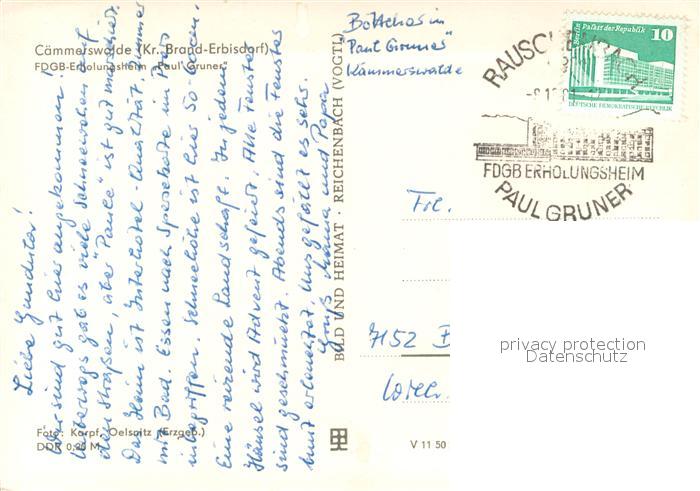 Cämmerswalde (Kr. Brand-Erbisdorf)
FDGB-Erholungsheim „Paul Gruner"
Liebe
Wir sind gut hier angekommen.
Unterwegs gab es viele Schneewehen auf
den Straßen, aber "Paule" ist gut marschiert.
Das Heim ist Interhotel-Qualität. Zimmer
mit Bad. Essen nach Speisekarte im Preis
inbegriffen. Schneehöhe ist hier 50 cm.
Eine reizende Landschaft. In jedem
Häusel wird Advent gefeiert. Alle Fenster
sind geschmückt. Abends sind die Fenster
bunt erleuchtet. Uns gefällt es sehr.
Gruß Mama und Papa
Foto: Karpf, Oelsnitz (Erzgeb.)
DDR 0,20 M
BILD UND HEIMAT · REICHENBACH (VOGTL)
V 11 50
"Paul Gruner"
Kämmerswalde
Berlin, Palast der Republik
10
DEUTSCHE DEMOKRATISCHE REPUBLIK
FDGB ERHOLUNGSHEIM
PAUL GRUNER
Frl.
7152 B
privacy protection
Datenschutz